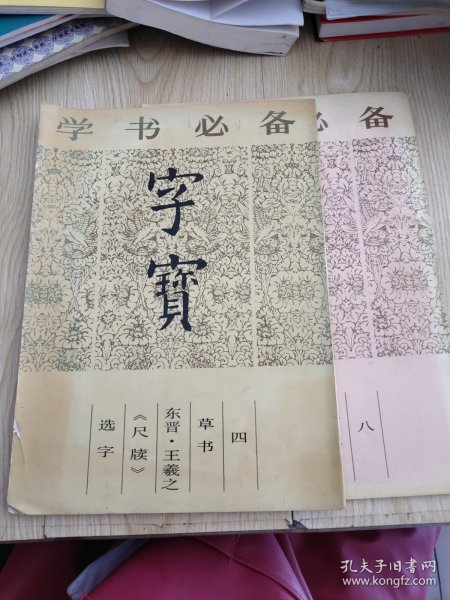 学书必备
字寳
四
草书
东晋·王羲之
《尺牍》
选字
必备
八
孔夫子旧书网
www.kongfz.com